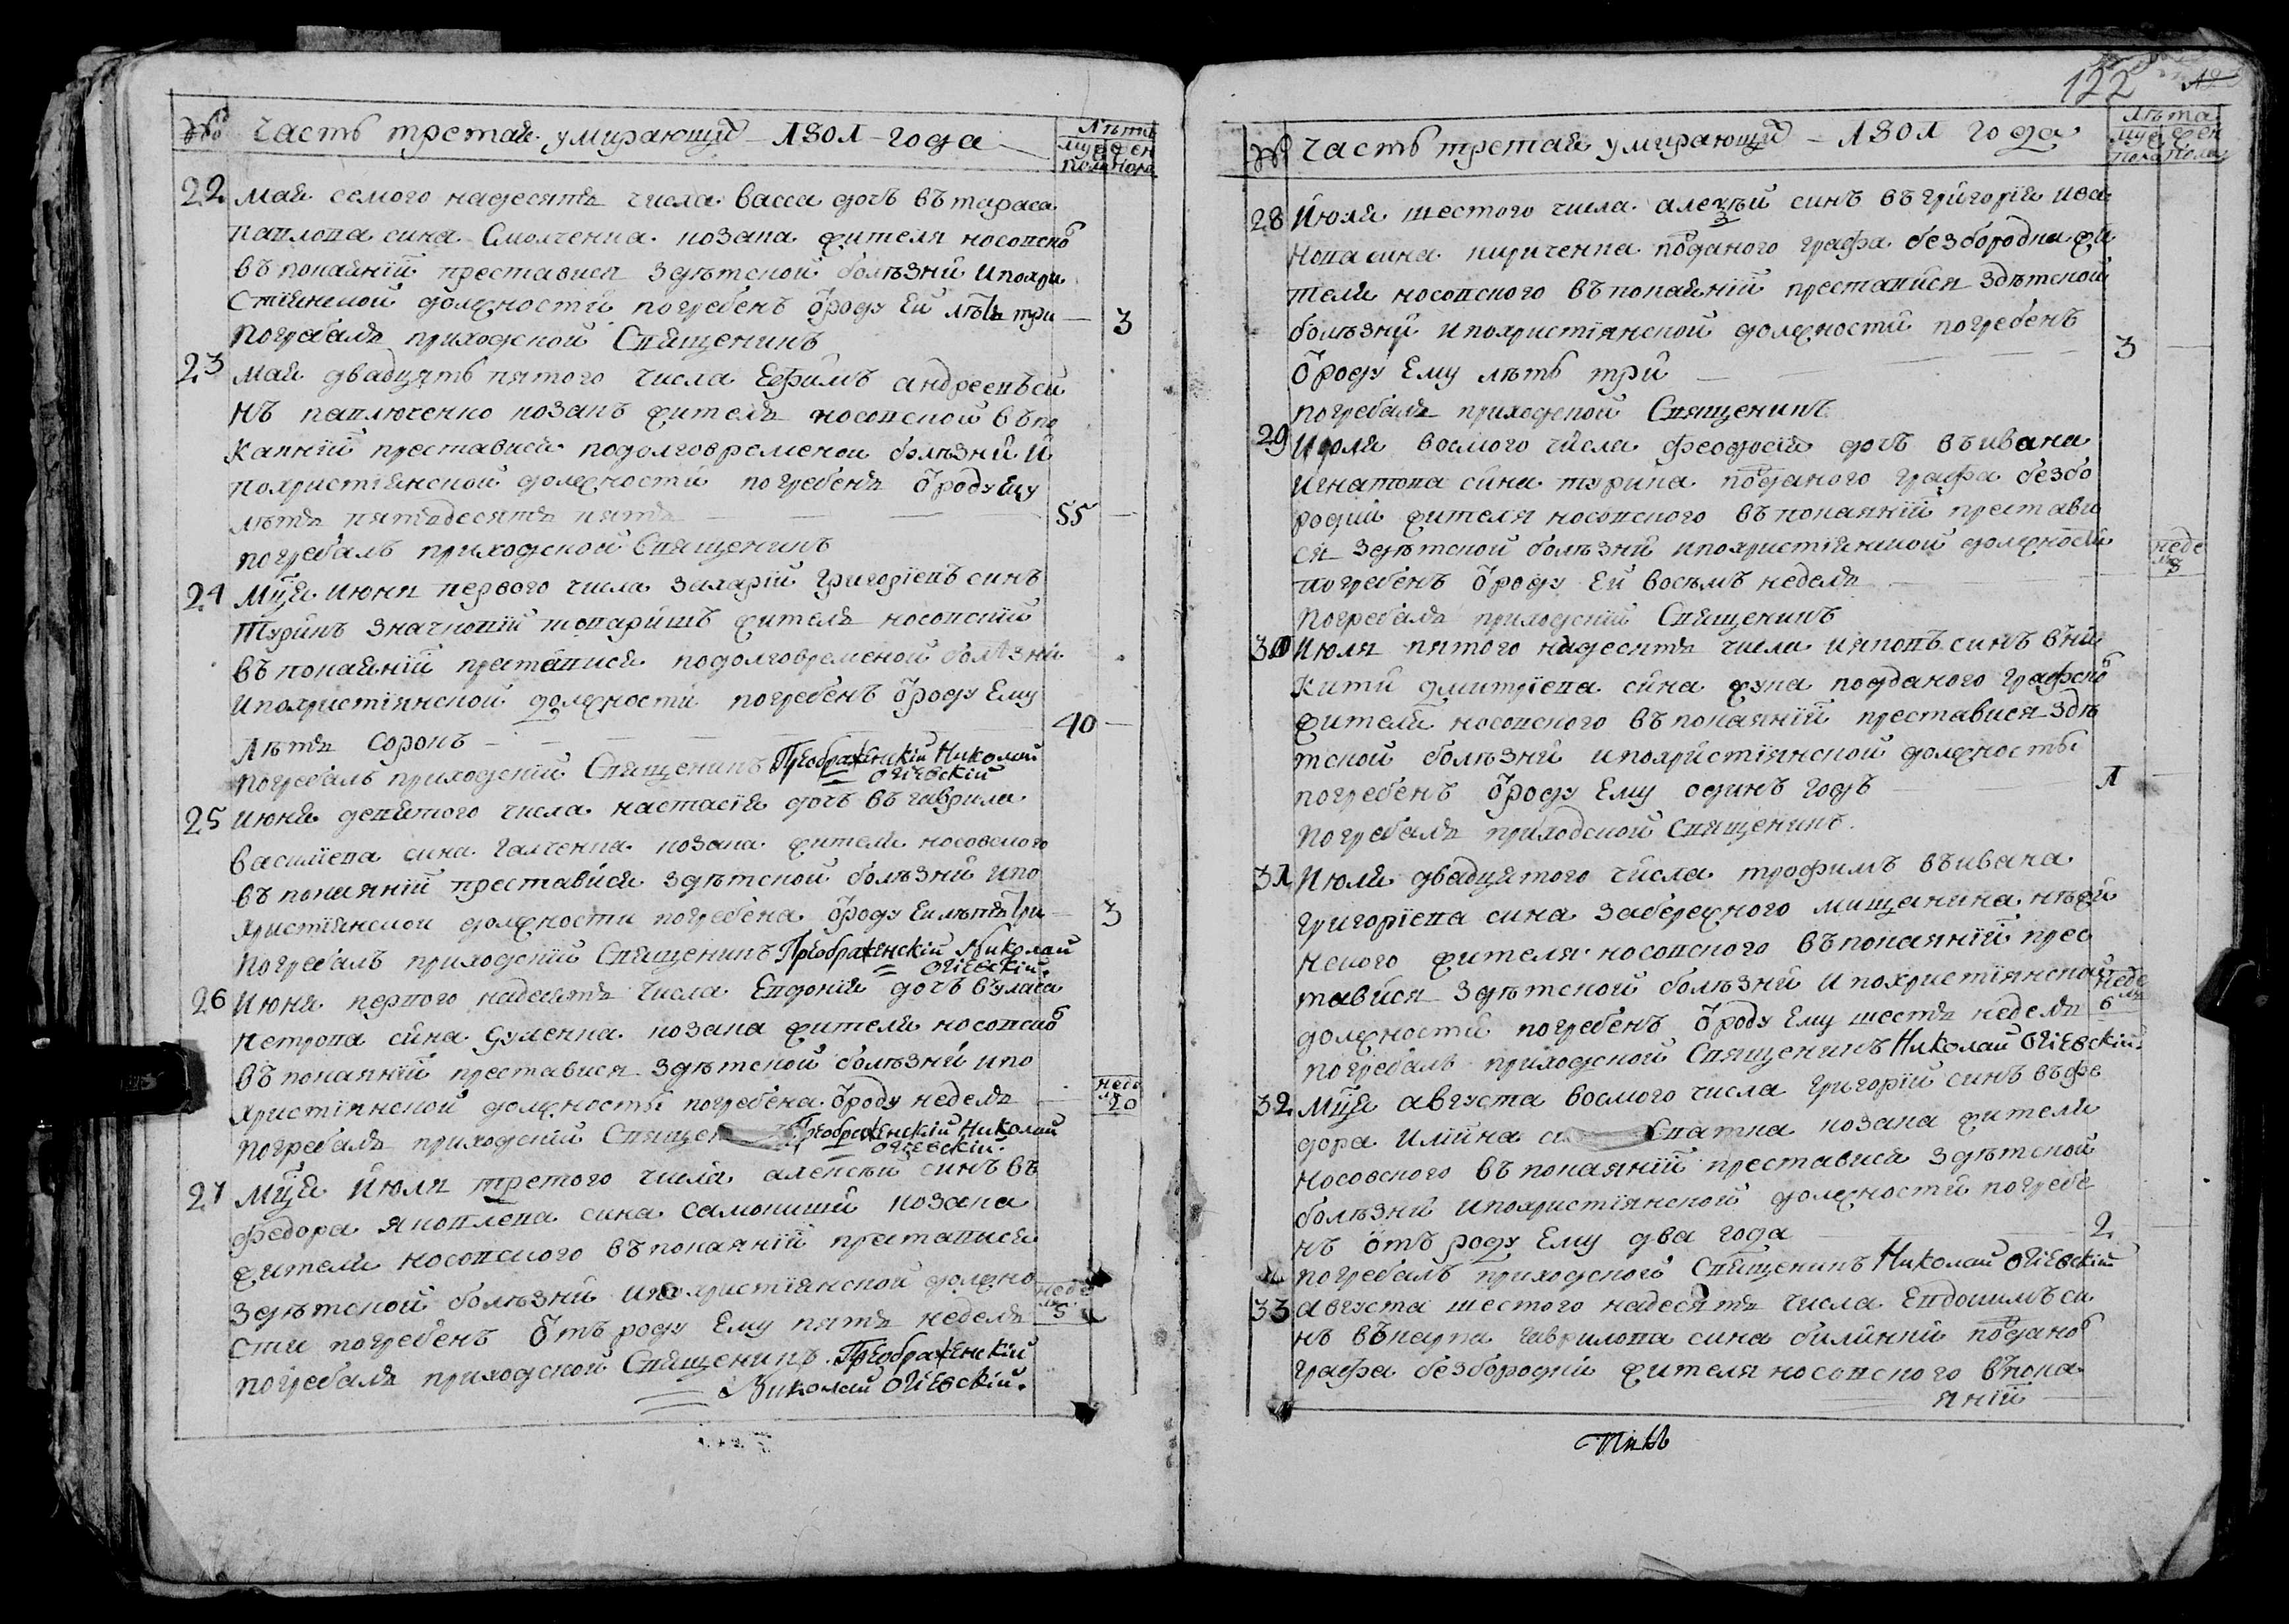 № Часть третая умирающий 1801 года
Лѣта
муж жен
пола пола
22 мая семого надесять числа васса дочъ въ тараса
павлова сина Смолченка козака жителя носовско
въ покаянїи преставися здѣтской болѣзни и похри
стїянской должности погребенъ ѿроду ей лѣтъ три 3
погребалъ приходской Священикъ
23 мая двадцять пятого числа Ефимъ андреевъ си
нъ павлюченко козакъ житель носовской въ по
каянїи преставися подолговременои болѣзни и
похристїянской должности погребенъ ѿроду ему
лѣтъ пятьдесятъ пять 55
погребалъ приходской Священикъ
24 Мця июня первого числа захарїй григорїевъ синъ
Туринъ значковїй товаришъ житель носовскїй
въ покаянїи преставися подолговременой болѣзни
и похристїянской должности погребенъ ѿроду Ему
лѣтъ сорокъ 40
погребалъ приходскїй Священикъ Преображенскїй Николай
Огїевскїй
25 июня девятого числа настасїя дочъ въ гаврила
василїева сина Галченка козака жителя носовского
въ покаянїи преставися здѣтской болѣзни и по
христїянской должности погребена ѿроду Ей лѣтъ три 3
погребалъ приходскїй Священикъ Преображенскїй Николай
Огїевскїй.
26 Июня первого надесять числа Евдокїя дочъ въ уласа
петрова сина Суленка козака жителя носовско
въ покаянїи преставися здѣтской болѣзни и по
христїянской должности погребена ѿроду неделъ неде 20
погребалъ приходскїй Священ Преображенскїй Николай
Огїевскїй.
27 Мця Июля третого числа алексѣй синъ въ
федора яковлева сина самокиши козака
жителя носовского въ покаянїи преставися
здѣтской болѣзни и похристїянской должно
сти погребенъ ѿтъ роду Ему пять неделъ неде 5
погребалъ приходской Священикъ. Преображенскїй
Николай Огїевскїй.
122
№ Часть третая умирающий 1801 года
Лѣта
муж жен
пола пола
28 Июля шестого числа алеѯѣй синъ въ григорїя ива
нова сина кириченка подданого графа безбородка жи
теля носовского въ покаянїи преставися здѣтской
болѣзни и похристїянской должности погребенъ
ѿроду Ему лѣтъ три 3
погребалъ приходской Священикъ
29 Июля восмого числа феодосїя дочъ въ ивана
Игнатова сина турика подданого графа безбо
родки жителя носовского въ покаянїи престави
ся здѣтской болѣзни и похристїянской должности
погребенъ ѿроду Ей восѣмъ неделъ неде 8
погребалъ приходскїй Священикъ
30 Июля пятого надесять числа иаковъ синъ въ ни
кити дмитрїева сина жука подданого графско
жителя носовского въ покаянїи преставися здѣ
тской болѣзни и похристїянской должности
погребенъ ѿроду Ему одинъ годъ 1
погребалъ приходской Священикъ.
31 Июля двадцятого числа трофимъ въ ивана
григорїева сина забережного мищанина нѣжи
нского жителя носовского въ покаянїи прес
тавися здѣтской болѣзни и похристїянской
должности погребенъ ѿроду Ему шесть неделъ неде 6
погребалъ приходской Священикъ Николай Огїевскїй.
32 Мця августа восмого числа григорїй синъ въ фе
дора илїина си козака жителя
носовского въ покаянїи преставися здѣтской
болѣзни и похристїянской должности погребе
нъ ѿтъ роду Ему два года 2
погребалъ приходского Священикъ Николай Огїевскїй
33 августа шестого надесять числа Евдокимъ си
нъ въ карпа гаврилова сина билики поддано
графа безбородки жителя носовского въ пока
янїи